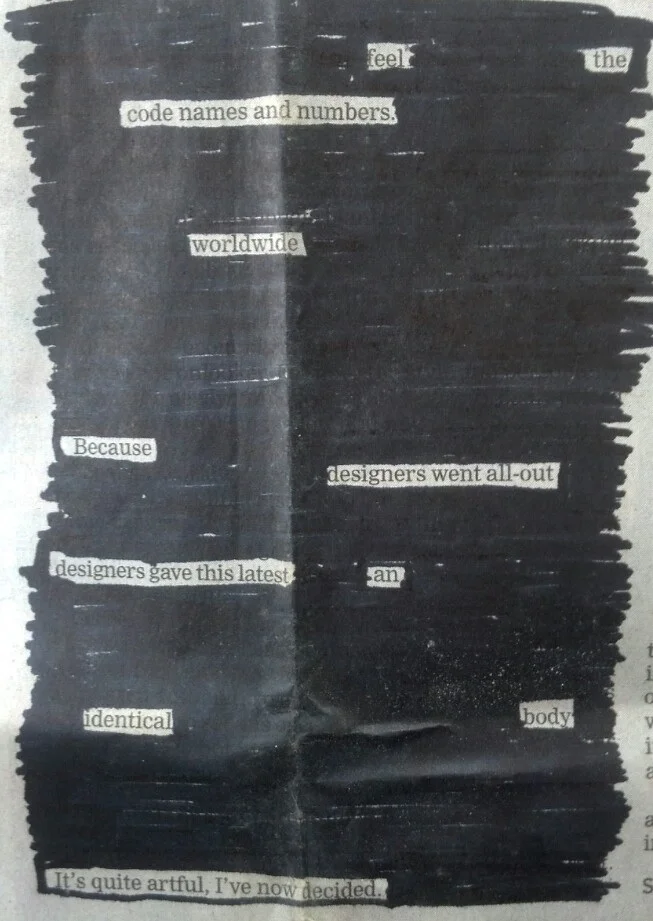 feel the
code names and numbers.
worldwide
Because
designers went all-out
designers gave this latest an
identical body
It's quite artful, I've now decided.